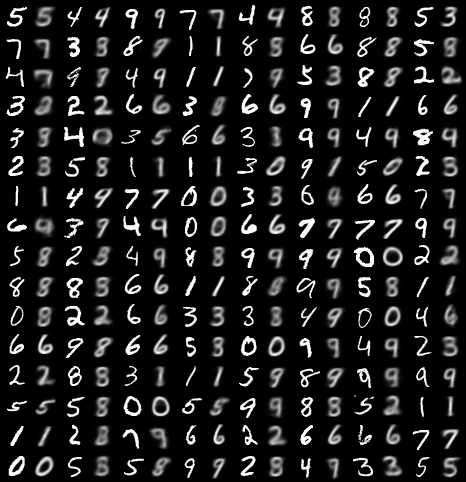 5 5 4 4 9 9 7 7 4 4 8 8 8 8 5 3
7 7 3 3 8 9 1 1 8 8 6 6 8 8 5 8
4 7 9 8 4 9 1 1 7 9 5 3 8 8 2 2
3 2 2 2 6 6 3 8 6 6 9 9 1 1 6 6
3 8 4 0 3 5 6 6 3 3 9 9 4 9 8 9
2 3 5 8 1 1 1 1 3 0 9 1 5 0 2 3
1 1 4 9 7 7 0 0 3 3 6 4 6 6 7 7
6 9 3 9 4 9 0 0 6 6 7 7 7 7 9 9
5 8 2 3 4 9 8 8 9 9 9 9 0 0 2 2
8 8 8 3 6 6 1 1 8 8 9 9 5 8 1 1
0 8 2 2 6 6 3 3 3 8 4 9 0 0 4 6
6 6 9 8 6 6 5 8 0 0 9 9 4 9 2 3
2 2 8 8 3 1 1 1 5 9 8 9 9 9 9 9
5 5 5 8 0 0 5 5 9 9 8 8 5 2 1 1
1 1 2 8 7 9 6 6 2 2 6 6 6 6 7 7
0 0 5 3 5 8 9 9 2 8 4 9 3 3 5 5